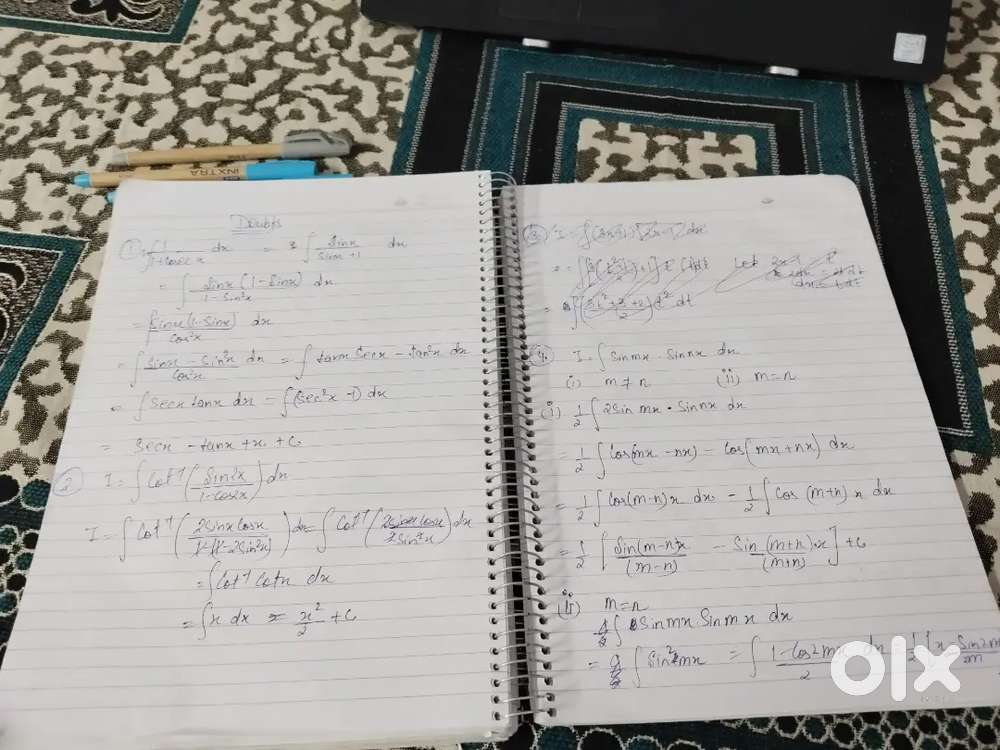 INXTRA
Doubts
① ∫ 1/(1+cosec x) dx = ∫ sinx/(sinx+1) dx
= ∫ sinx(1-sinx)/(1-sin²x) dx
= ∫ sinx(1-sinx)/cos²x dx
= ∫ (sinx - sin²x)/cos²x dx = ∫ tanx secx - tan²x dx
= ∫ secx tanx dx = ∫ (sec²x - 1) dx
= secx - tanx + x + c
② I = ∫ cot⁻¹(sin2x/(1-cos2x)) dx
I = ∫ cot⁻¹(2sinx cosx/(1-(1-2sin²x))) dx = ∫ cot⁻¹(2sinx cosx/2sin²x) dx
= ∫ cot⁻¹ cotx dx
= ∫ x dx = x²/2 + c
③ I = dx
Let
t² dt
④ I = ∫ sinmx · sinnx dx
(i) m ≠ n (ii) m = n
(i) 1/2 ∫ 2sin mx · sinnx dx
= 1/2 ∫ cos(mx - nx) - cos(mx + nx) dx
= 1/2 ∫ cos(m-n)x dx - 1/2 ∫ cos (m+n) x dx
= 1/2 [sin(m-n)x/(m-n) - sin (m+n)·x/(m+n)] + c
(ii) m = n
∫ sinmx sinmx dx
= ∫ sin²mx = ∫ (1-cos2mx)/2 dx = 1/2 [x - sin2m/2m
olx